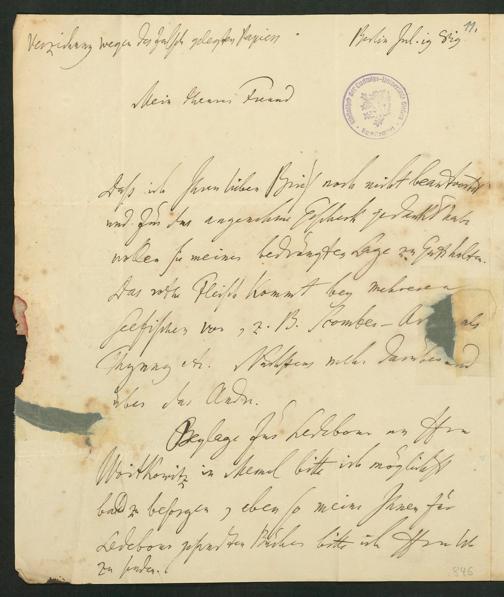 Verzeihung wegen des falsch gelegten Papiers.
Berlin Jul. 19 819
11.
Mein theurer Freund
Daß ich Ihren lieben Brief noch nicht beantwortet
und für das angenehme Geschenk gedankt habe
wollen Sie meiner bedrängten Lage zu Gute halten.
Das rothe Fleisch kommt bey mehreren
Seefischen vor, z. B. Scomber-Ar als
Thynnus etc. Nächstens mehr darüber und
über das Andre.
Beylage für Ledebour an Hrn
in Memel bitte ich möglichst
bald zu besorgen, eben so meine Ihnen für
Ledebour gesandten Bücher bitte ich Hrn
zu senden.
846